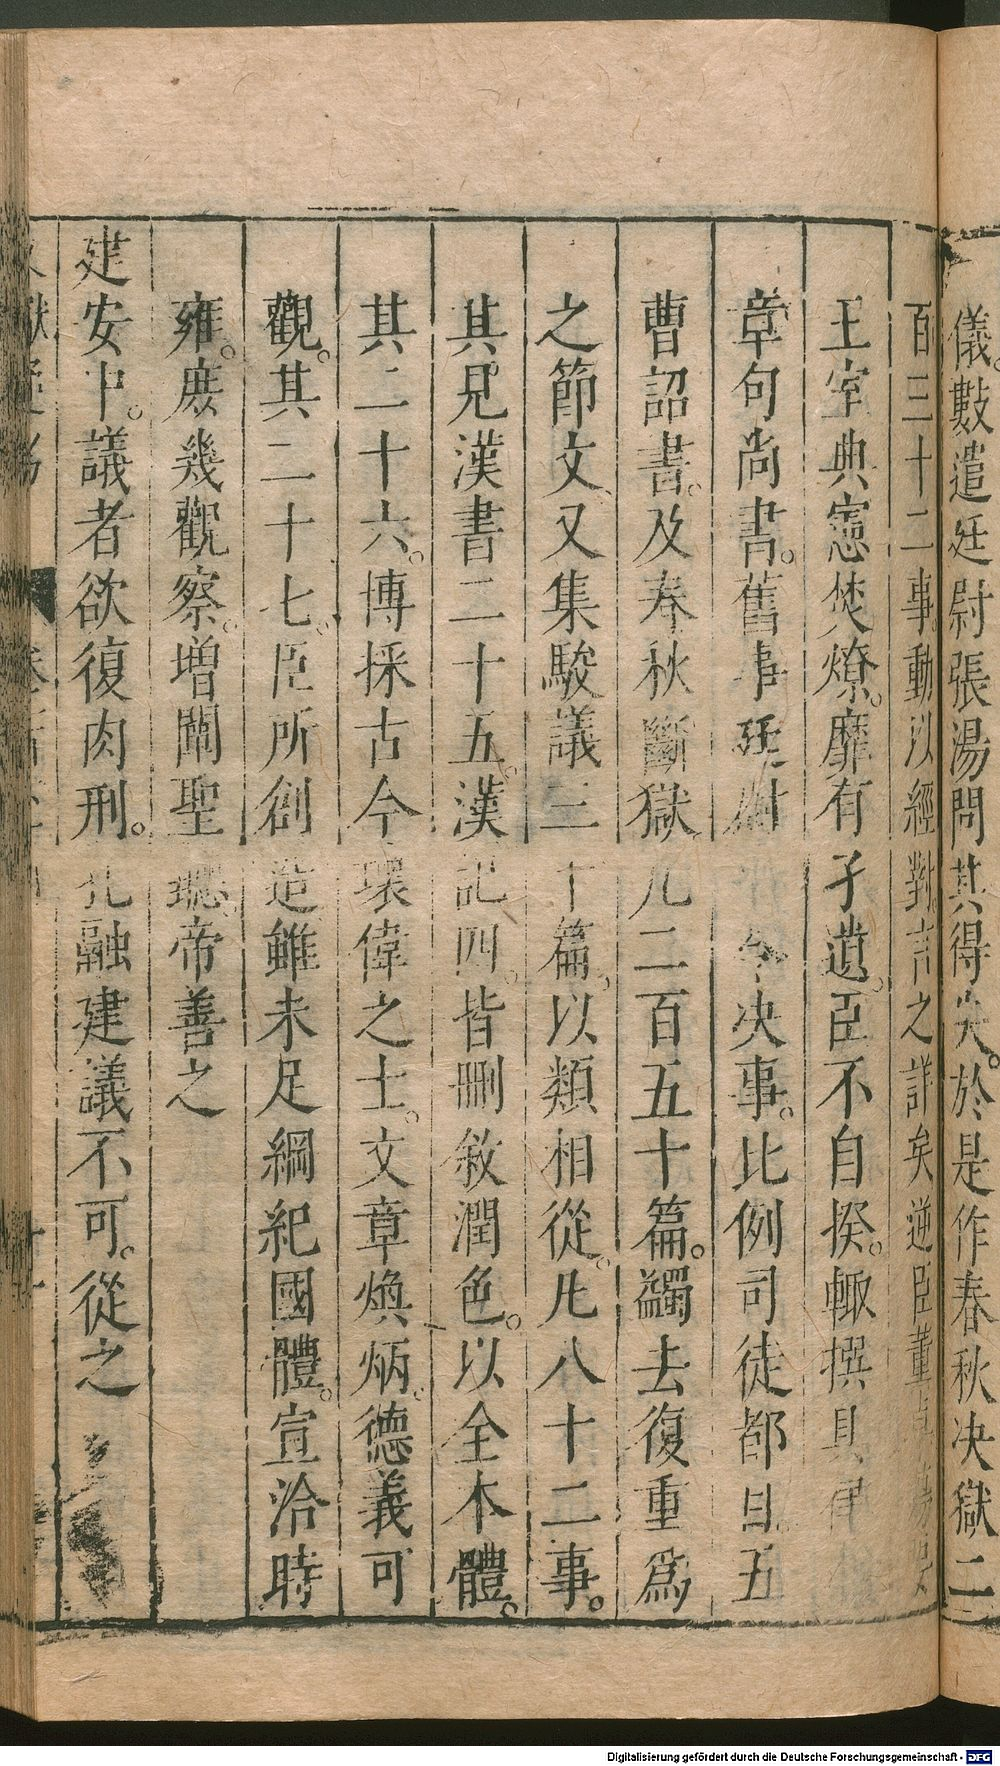 儀。數遣廷尉張湯問其得失。於是作春秋決獄二
百三十二事。動以經對言之詳矣逆臣董
王室典憲焚燎。靡有孑遺。臣不自揆。輒撰具律
章句尚書。舊事廷尉令決事。比例司徒都目五
曹詔書。及春秋斷獄凡二百五十篇。蠲去復重爲
之節文、又集駮議三十篇。以類相從。凡八十二事。
其見漢書二十五。漢記四。皆刪敘潤色。以全本體。
其二十六。博採古今瓌偉之士。文章煥炳。德義可
觀。其二十七。臣所創造雖未足綱紀國體。宣洽時
雍。庶幾觀察。增闡聖聰。帝善之
建安中。議者欲復肉刑。孔融建議不可。從之